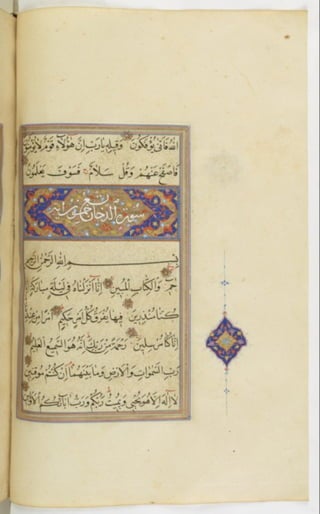 الله فانى يؤفكون وقيله يارب ان هؤلاء قوم لا يؤمنون
فاصفح عنهم وقل سلام فسوف يعلمون
سورة الدخان
بسم الله الرحمن الرحيم
حم والكتاب المبين انا انزلناه فى ليلة مباركة انا
كنا منذرين فيها يفرق كل امر حكيم امرا من عندنا
انا كنا مرسلين رحمة من ربك انه هو السميع العليم
رب السموات والارض وما بينهما ان كنتم موقنين
لا اله الا هو يحيى ويميت ربكم ورب ابائكم الاولين